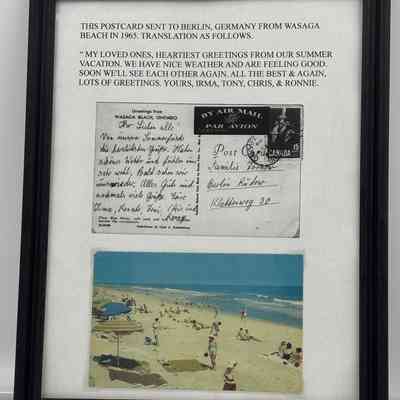 THIS POSTCARD SENT TO BERLIN, GERMANY FROM WASAGA
BEACH IN 1965. TRANSLATION AS FOLLOWS.
“ MY LOVED ONES, HEARTIEST GREETINGS FROM OUR SUMMER
VACATION. WE HAVE NICE WEATHER AND ARE FEELING GOOD.
SOON WE'LL SEE EACH OTHER AGAIN. ALL THE BEST & AGAIN,
LOTS OF GREETINGS. YOURS, IRMA, TONY, CHRIS, & RONNIE.
Greetings from
WASAGA BEACH, ONTARIO
Ihr Lieben alle
Von unserer Sommerfrische
die herzlichsten Grüße. Haben
schönes Wetter und fühlen uns
sehr wohl. Bald sehen wir
uns wieder. Alles Gute und
nochmals viele Grüße. Eure
Irma, Toni,
BY AIR MAIL
PAR AVION
CANADA
15
Post Card
Familie
Berlin
20